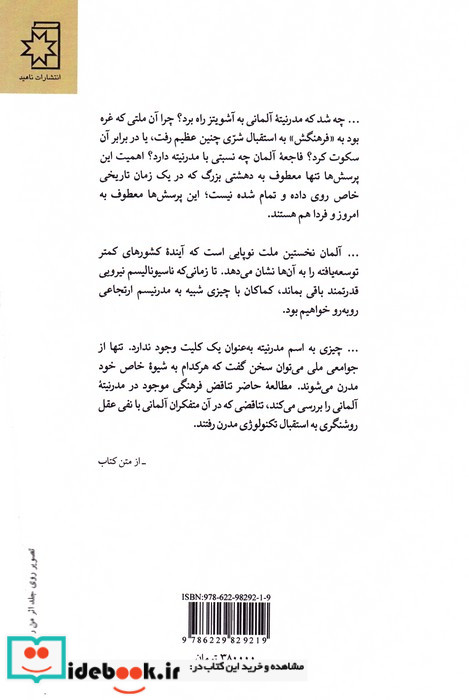 انتشارات ناهید
... چه شد که مدرنیتهٔ آلمانی به آشویتز راه برد؟ چرا آن ملتی که غره
بود به «فرهنگش» به استقبال شرّی چنین عظیم رفت، یا در برابر آن
سکوت کرد؟ فاجعهٔ آلمان چه نسبتی با مدرنیته دارد؟ اهمیت این
پرسش‌ها تنها معطوف به دهشتی بزرگ که در یک زمان تاریخی
خاص روی داده و تمام شده نیست؛ این پرسش‌ها معطوف به
امروز و فردا هم هستند.
... آلمان نخستین ملت نوپایی است که آیندهٔ کشورهای کمتر
توسعه‌یافته را به آن‌ها نشان می‌دهد. تا زمانی‌که ناسیونالیسم نیرویی
قدرتمند باقی بماند، کماکان با چیزی شبیه به مدرنیسم ارتجاعی
روبه‌رو خواهیم بود.
... چیزی به اسم مدرنیته به‌عنوان یک کلیت وجود ندارد. تنها از
جوامعی ملی می‌توان سخن گفت که هرکدام به شیوهٔ خاص خود
مدرن می‌شوند. مطالعهٔ حاضر تناقض فرهنگی موجود در مدرنیتهٔ
آلمانی را بررسی می‌کند، تناقضی که در آن متفکران آلمانی با نفی عقل
روشنگری به استقبال تکنولوژی مدرن رفتند.
ـ از متن کتاب
تصویر روی جلد اثر من ر
ISBN:978-622-98292-1-9
9 786229 829219
۳۸۰۰۰۰ تومان
مشاهده و خرید این کتاب در:
idebook.ir